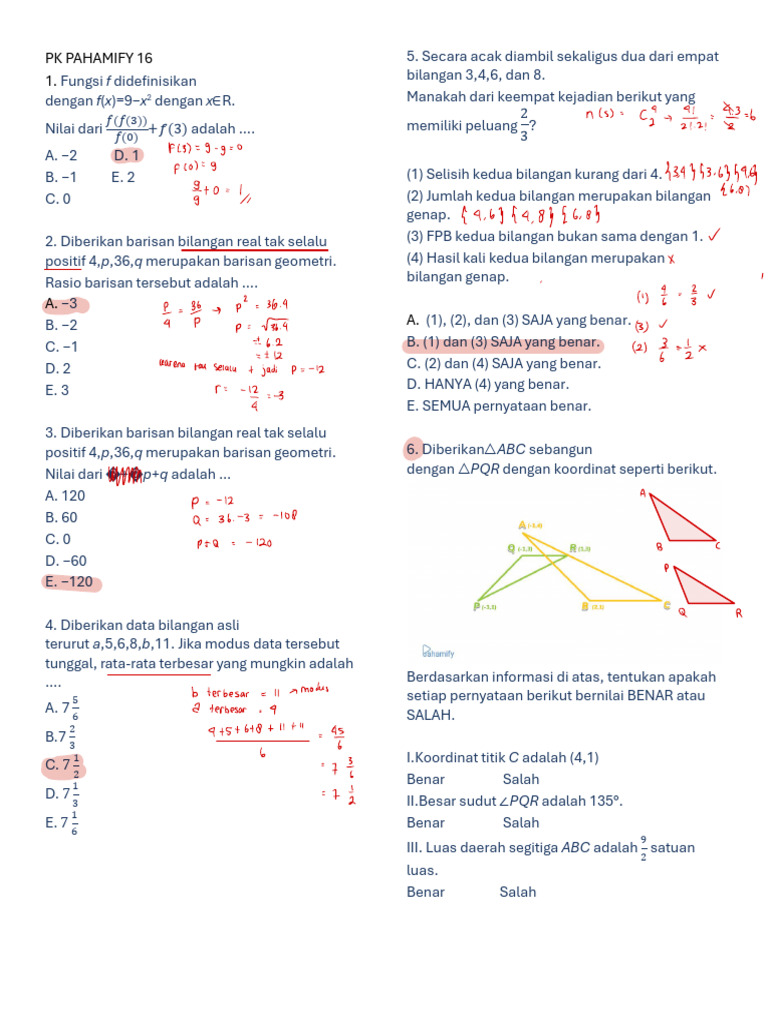 PK PAHAMIFY 16
1. Fungsi f didefinisikan
dengan f(x)=9−x² dengan x∈R.
Nilai dari f(f(3))/f(0) + f(3) adalah ....
A. −2 D. 1
B. −1 E. 2
C. 0
F(3) = 9 - 9 = 0
F(0) = 9
9/9 + 0 = 1 //
2. Diberikan barisan bilangan real tak selalu
positif 4,p,36,q merupakan barisan geometri.
Rasio barisan tersebut adalah ....
A. −3
B. −2
C. −1
D. 2
E. 3
P/4 = 36/P → P² = 36.4
P = √36.4
= ± 6.2
= ± 12
karena tak selalu + jadi P = -12
r = -12/4 = -3
3. Diberikan barisan bilangan real tak selalu
positif 4,p,36,q merupakan barisan geometri.
Nilai dari p+q adalah ...
A. 120
B. 60
C. 0
D. −60
E. −120
P = -12
Q = 36.-3 = -108
P+Q = -120
4. Diberikan data bilangan asli
terurut a,5,6,8,b,11. Jika modus data tersebut
tunggal, rata-rata terbesar yang mungkin adalah
....
A. 7 5/6
B.7 2/3
C. 7 1/2
D. 7 1/3
E. 7 1/6
b terbesar = 11 → modus
a terbesar = 4
4+5+6+8+11+11/6 = 45/6
= 7 3/6
= 7 1/2
5. Secara acak diambil sekaligus dua dari empat
bilangan 3,4,6, dan 8.
Manakah dari keempat kejadian berikut yang
memiliki peluang 2/3?
n(s) = C⁴₂ → 4!/2!.2! = 4.3/2 = 6
(1) Selisih kedua bilangan kurang dari 4. {3,4} {3,6} {4,6}
{6,8}
(2) Jumlah kedua bilangan merupakan bilangan
genap. {4,6} {4,8} {6,8}
(3) FPB kedua bilangan bukan sama dengan 1. ✓
(4) Hasil kali kedua bilangan merupakan x
bilangan genap.
(1) 4/6 = 2/3 ✓
(3) ✓
(2) 3/6 = 1/2 x
A. (1), (2), dan (3) SAJA yang benar.
B. (1) dan (3) SAJA yang benar.
C. (2) dan (4) SAJA yang benar.
D. HANYA (4) yang benar.
E. SEMUA pernyataan benar.
6. Diberikan△ABC sebangun
dengan △PQR dengan koordinat seperti berikut.
A (-1,4)
Q (-1,3)
R (1,3)
P (-3,1)
B (2,1)
C
A
B
C
P
Q
R
Pahamify
Berdasarkan informasi di atas, tentukan apakah
setiap pernyataan berikut bernilai BENAR atau
SALAH.
I.Koordinat titik C adalah (4,1)
Benar Salah
II.Besar sudut ∠PQR adalah 135°.
Benar Salah
III. Luas daerah segitiga ABC adalah 9/2 satuan
luas.
Benar Salah